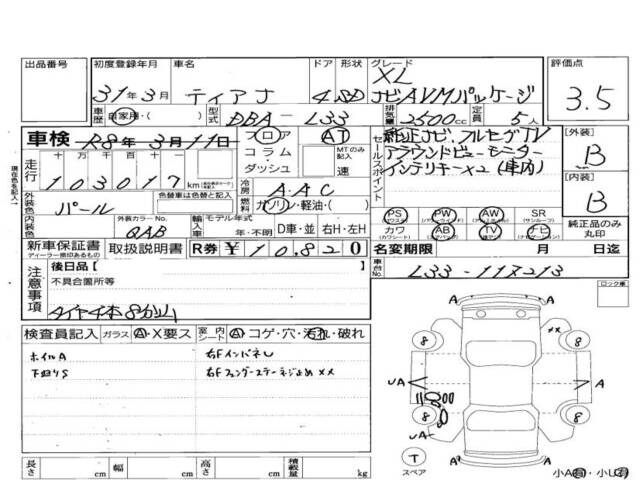 出品番号 初度登録年月 車名 ドア 形状 グレード 評価点
31年3月 ティアナ 4 SD XL ナビAVMパッケージ 3.5
車歴 自家用・( ) 型式 DBA-L33 排気量 2500cc 定員 5人
車検 R8年3月11日 フロア AT 純正ナビ.フルセグTV [外装]
コラム・ MTのみ記入 セールスポイント アラウンドビューモニター B
走行 十 万 千 百 十 一 ダッシュ 速 インテリキー×2 (車内)
103017 km 冷房 A.A.C [内装]
外装色 パール 色替車は色替と記入 燃料 ガソリン・軽油・( ) B
PS PW AW SR
内装色 外装カラーNo. QAB 輸入車 モデル年式 年・不明 D車・並 右H・左H カワ AB TV ナビ 純正品のみ丸印
新車保証書 ディーラー捺印あるもの 取扱説明書 R券 ¥10,820 名変期限 月 日迄
注意事項 後日品【 】 車台No. L33-11X213
不具合箇所等 ロック車
タイヤ4本8分山
検査員記入 ガラス A・X要ス 室内シート A・コゲ・穴・汚れ・破れ
ホイルA 右FインパネU
下廻りS
A A
8 ×× 8
UA A
8 8
UA
T スペア A A
長さ cm 幅 cm 高さ cm 積載量 kg 小A有・小U有
現在色を記入